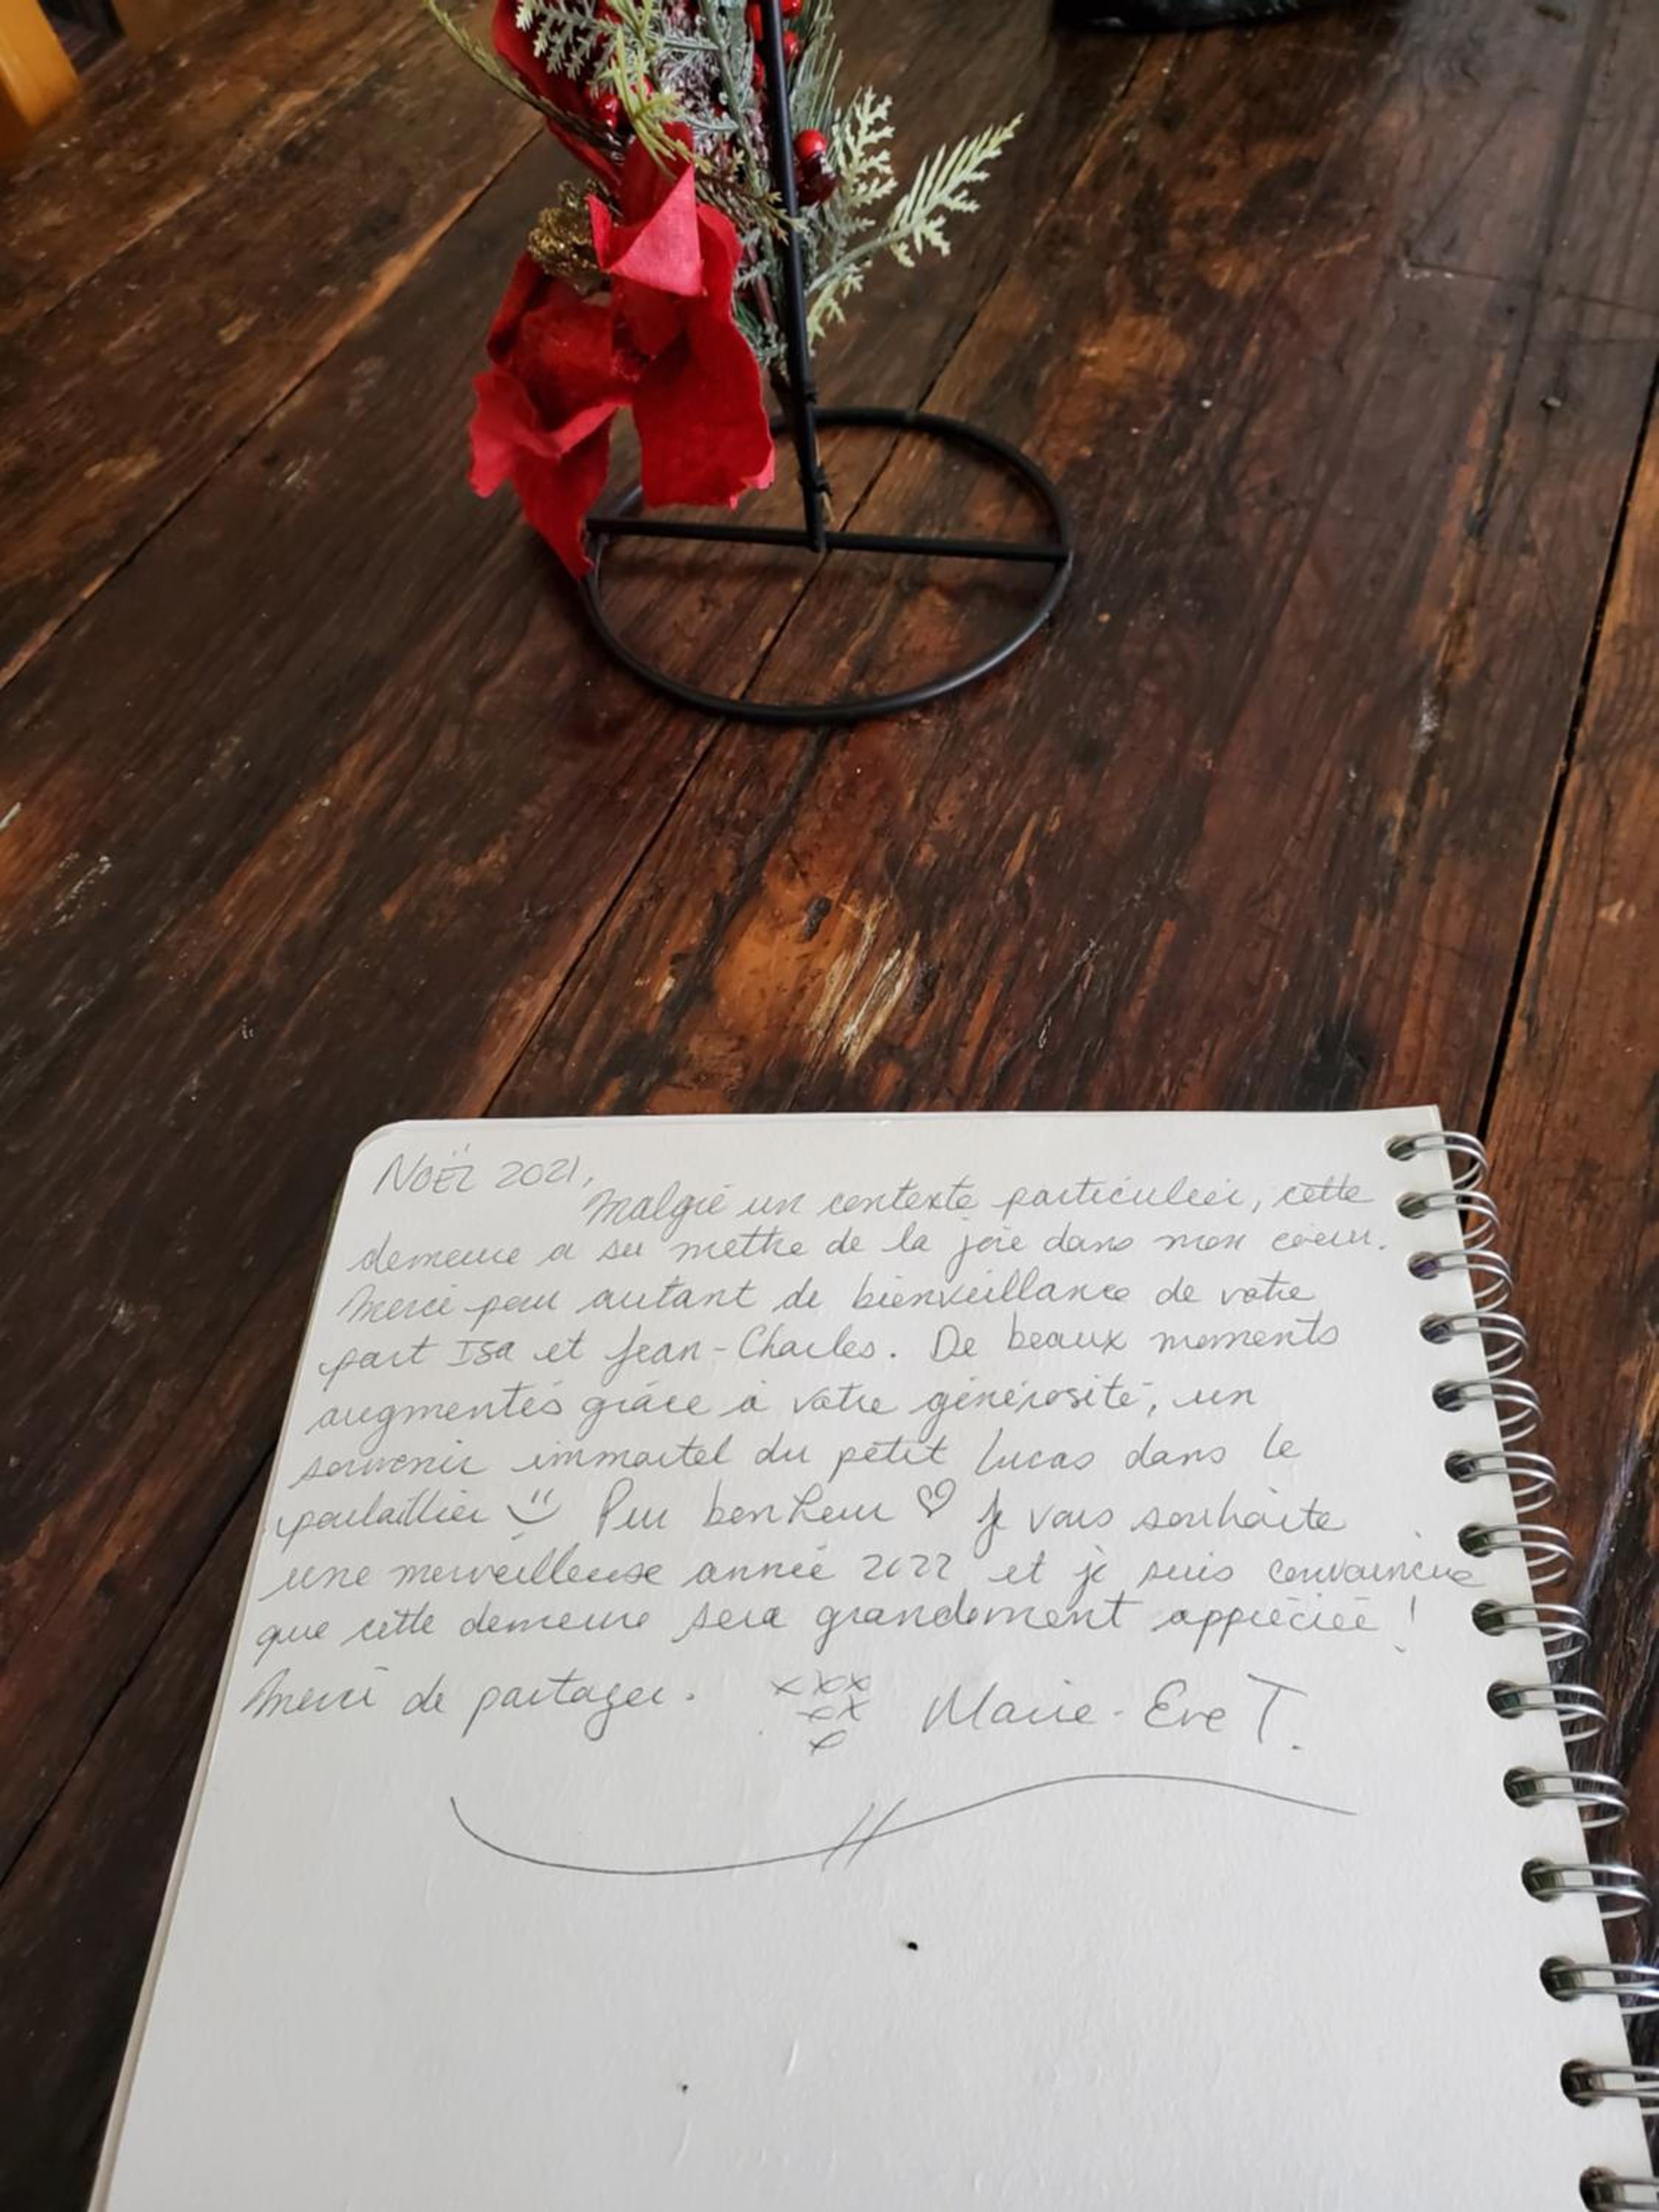 NOËL 2021,
Malgré un contexte particulier, cette
demeure a su mettre de la joie dans mon coeur.
Merci pour autant de bienveillance de votre
part Isa et Jean-Charles. De beaux moments
augmentés grâce à votre générosité, un
souvenir immortel du petit Lucas dans le
poulaillier Pur bonheur ♡ Je vous souhaite
une merveilleuse année 2022 et je suis convaincue
que cette demeure sera grandement appréciée !
Merci de partager. xxx Marie-Eve T.
xx
x